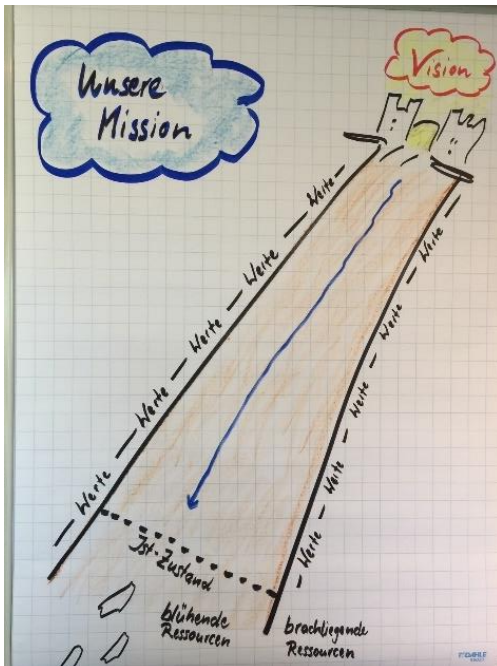 Unsere
Mission
Vision
Werte – Werte – Werte – Werte – Werte
Werte – Werte – Werte – Werte – Werte – Werte
Ist-Zustand
blühende
Ressourcen
brachliegende
Ressourcen
DAHLE